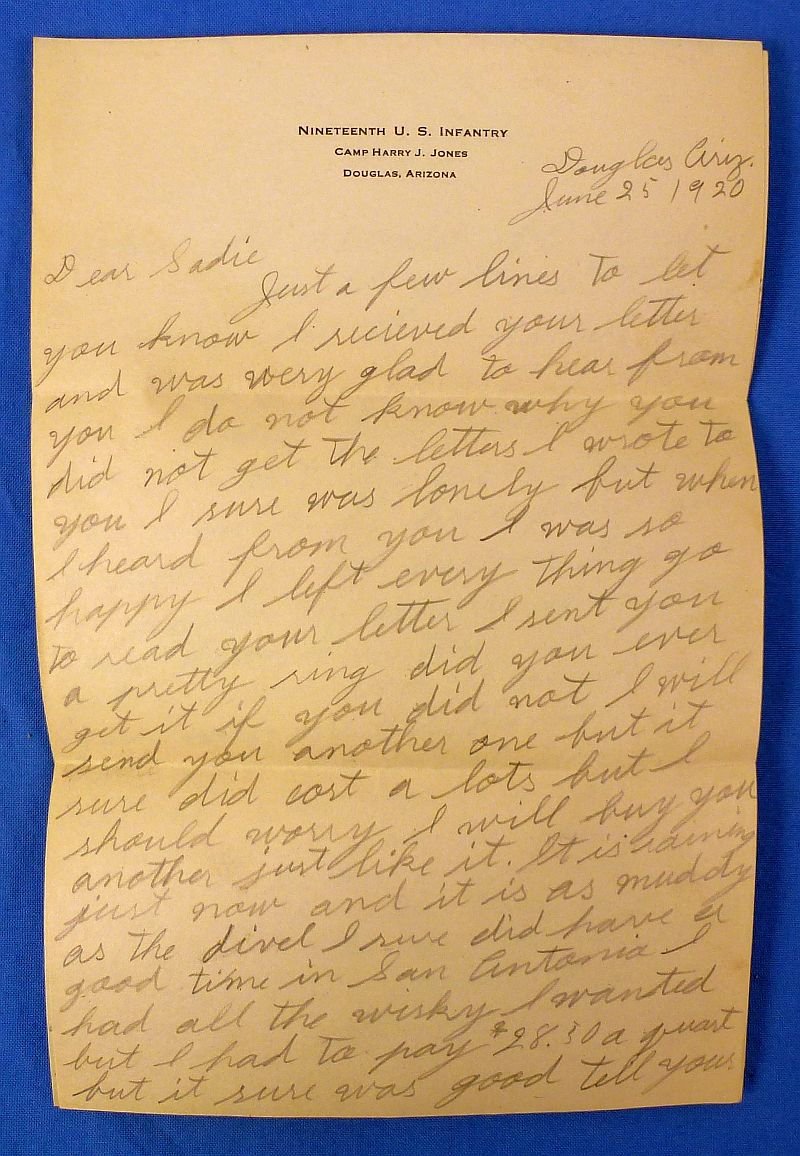 NINETEENTH U. S. INFANTRY
CAMP HARRY J. JONES
DOUGLAS, ARIZONA
Douglas Ariz.
June 25 1920
Dear Sadie
Just a few lines to let
you know I recieved your letter
and was wery glad to hear from
you I do not know why you
did not get the letters I wrote to
you I sure was lonely but when
I heard from you I was so
happy I left every thing go
to read your letter I sent you
a pretty ring did you ever
get it if you did not I will
send you another one but it
sure did cost a lots but I
should worry I will buy you
another just like it. It is raining
just now and it is as muddy
as the divel I sure did have a
good time in San Antonia I
had all the wisky I wanted
but I had to pay $28.50 a quart
but it sure was good tell your